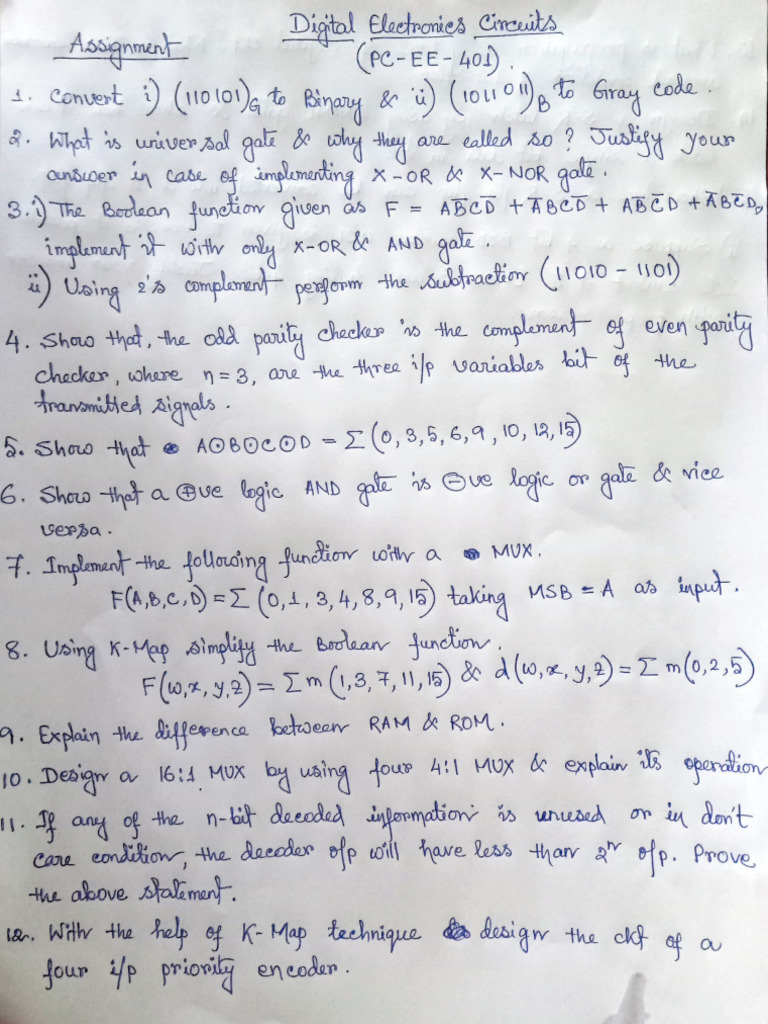 Digital Electronics Circuits
Assignment
(PC-EE-401).
1. Convert i) (110101)G to Binary & ii) (1011011)B to Gray code.
2. What is universal gate & why they are called so? Justify your
answer in case of implementing X-OR & X-NOR gate.
3. i) The Boolean function given as F = AB̅CD̅ + A̅BCD̅ + AB̅C̅D + A̅BC̅D,
implement it with only X-OR & AND gate.
ii) Using 2's complement perform the subtraction (11010 - 1101)
4. Show that, the odd parity checker is the complement of even parity
checker, where n=3, are the three i/p variables bit of the
transmitted signals.
5. Show that A⊙B⊙C⊙D = Σ(0,3,5,6,9,10,12,15)
6. Show that a ⊕ve logic AND gate is ⊖ve logic or gate & vice
versa.
7. Implement the following function with a MUX.
F(A,B,C,D) = Σ(0,1,3,4,8,9,15) taking MSB = A as input.
8. Using K-Map simplify the Boolean function.
F(w,x,y,z) = Σm(1,3,7,11,15) & d(w,x,y,z) = Σm(0,2,5)
9. Explain the difference between RAM & ROM.
10. Design a 16:1 MUX by using four 4:1 MUX & explain its operation
11. If any of the n-bit decoded information is unused or in don't
care condition, the decoder o/p will have less than 2ⁿ o/p. Prove
the above statement.
12. With the help of K-Map technique design the ckt of a
four i/p priority encoder.